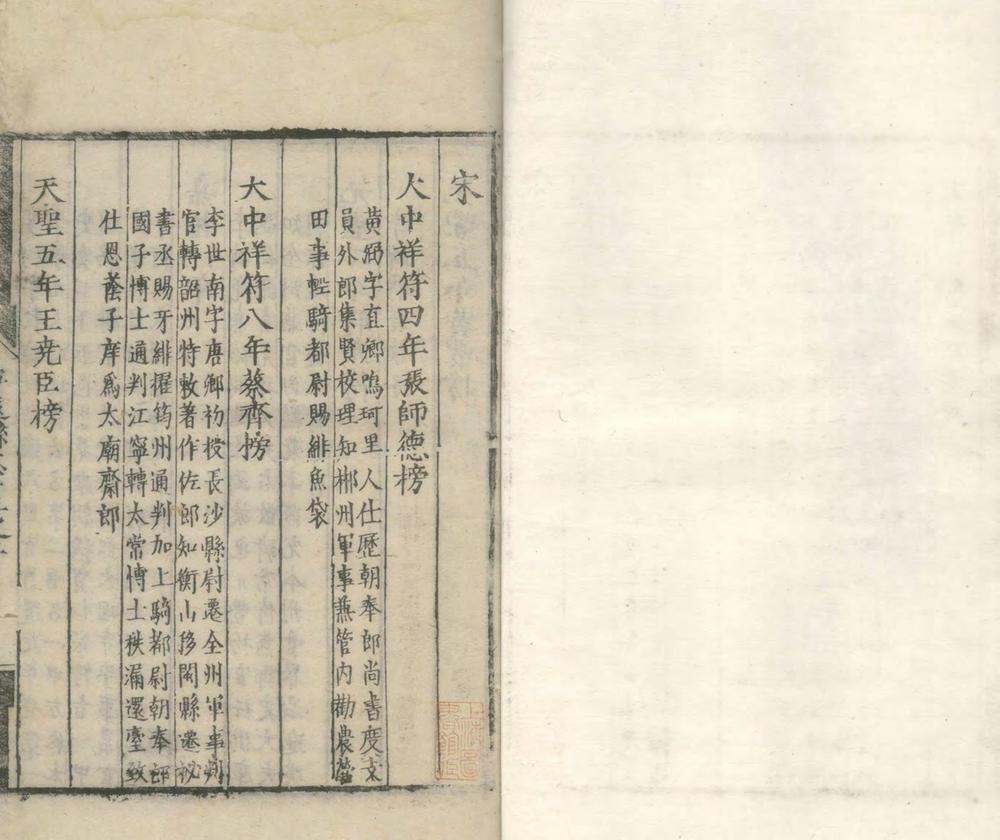 宋
大中祥符四年張師德榜
黄
字直卿鳴珂里人仕歷朝奉郎尚書度支
員外郎集賢校理知郴州軍事兼管内勸農營
田事輕騎都尉賜緋魚袋
大中祥符八年蔡齊榜
李世南字唐卿初授長沙縣尉遷全州軍事判
官轉韶州特敕著作佐郎知衡山移閩縣遷祕
書丞賜牙緋擢筠州通判加上騎都尉朝奉郎
國子博士通判江寧轉太常博士秩滿還臺致
仕恩蔭子庠爲太廟齋郎
天聖五年王尭臣榜